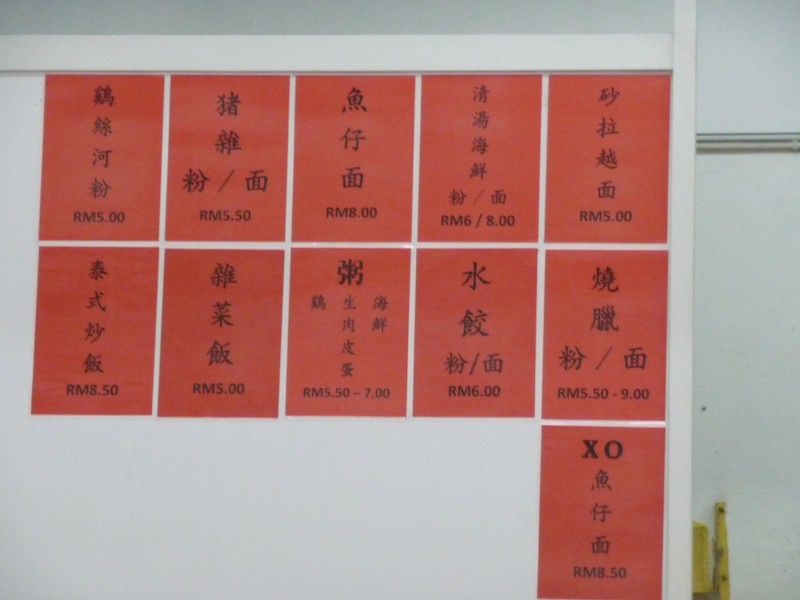 鷄絲河粉
RM5.00
猪雜
粉/面
RM5.50
魚仔面
RM8.00
清湯海鮮
粉/面
RM6 / 8.00
砂拉越面
RM5.00
泰式炒飯
RM8.50
雜菜飯
RM5.00
粥
鷄
生肉皮蛋
海鮮
RM5.50 – 7.00
水餃
粉/面
RM6.00
燒臘
粉/面
RM5.50 - 9.00
XO
魚仔面
RM8.50